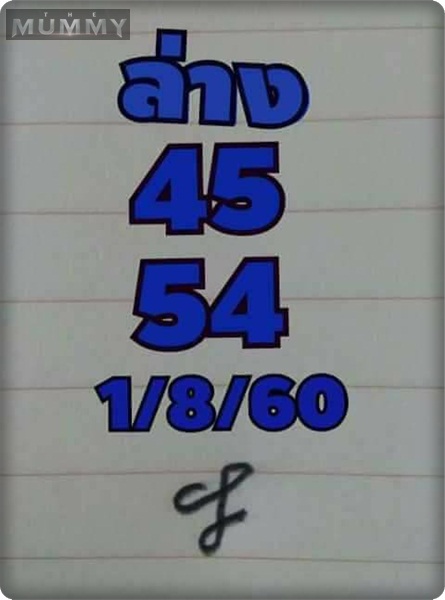 THE
MUMMY
ล่าง
45
54
1/8/60